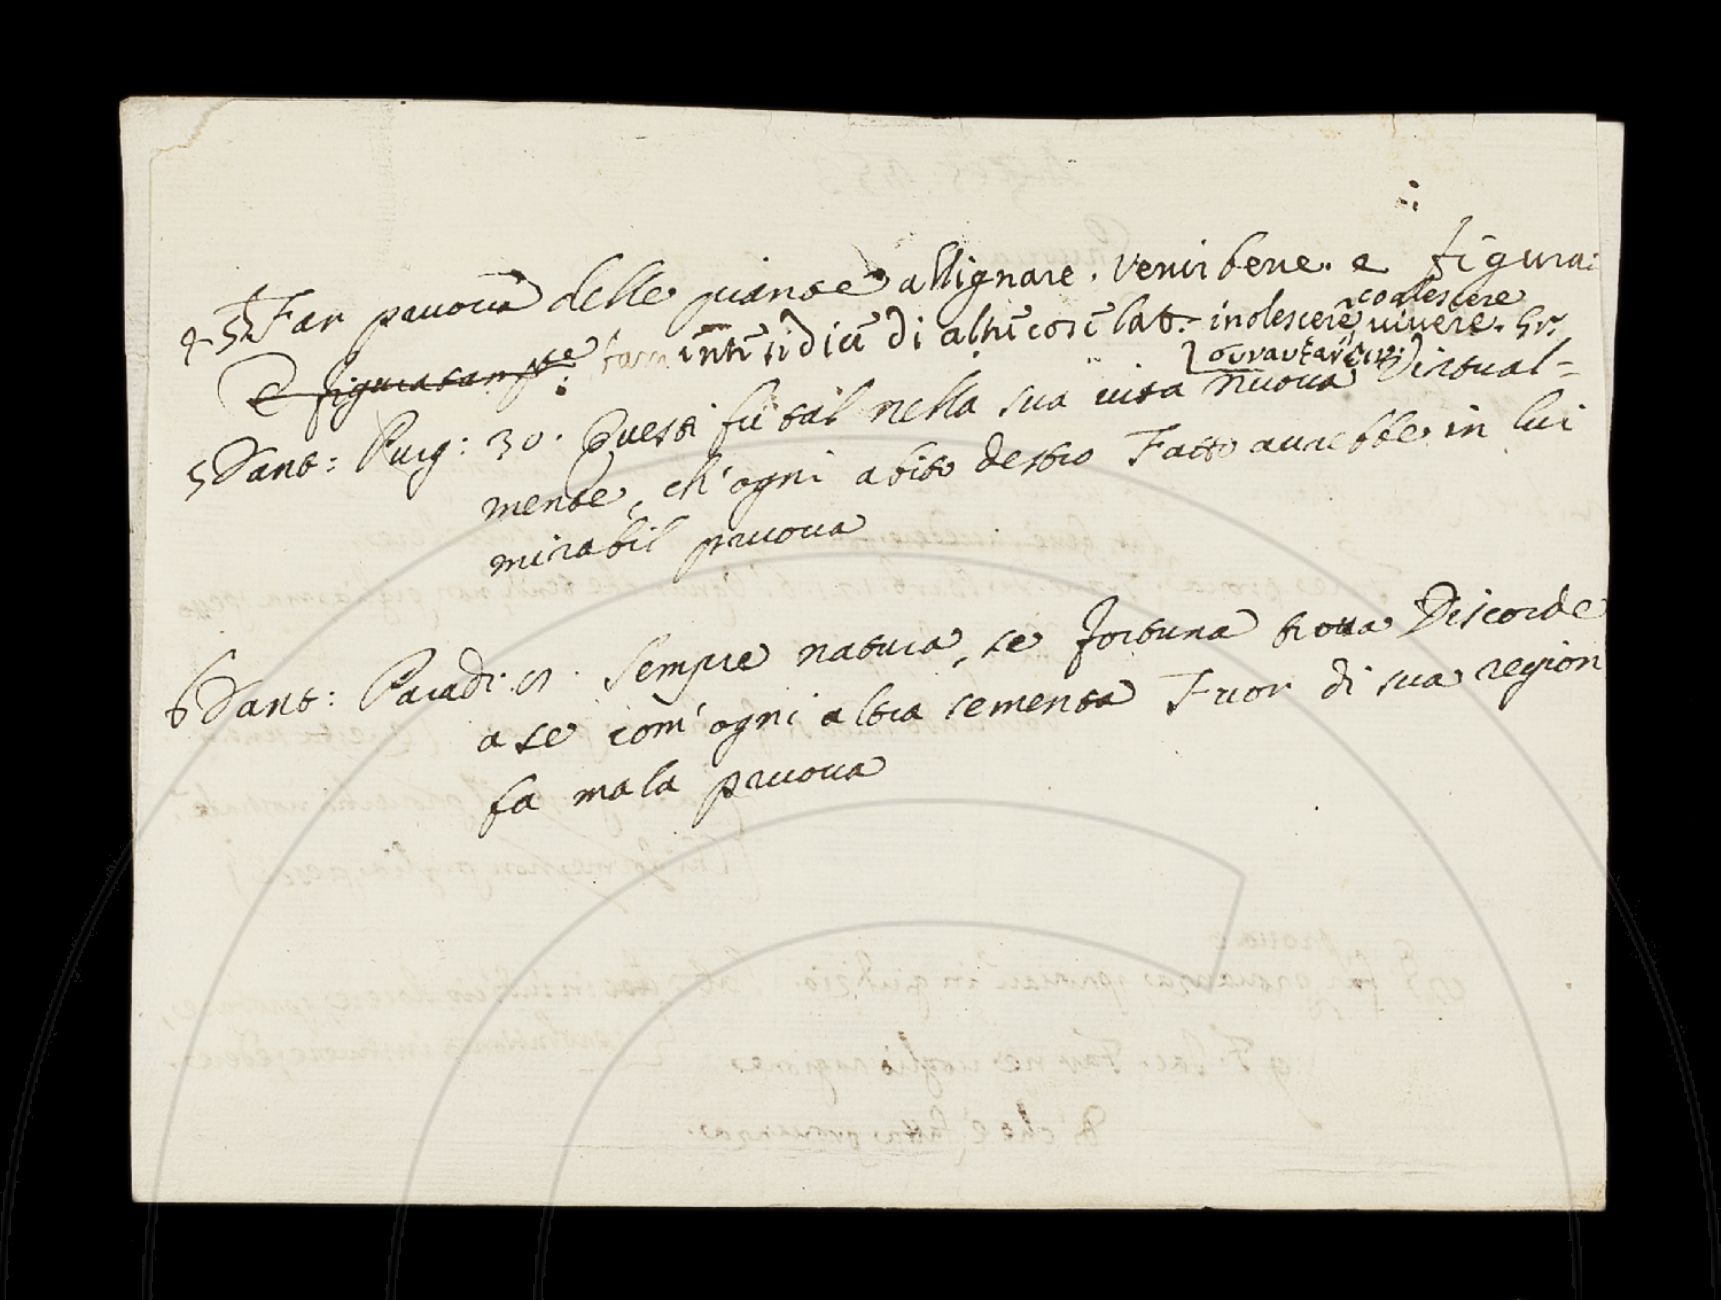 Far pruova delle piante allignare. Venir bene. e figura:
coalescere
tam intēsidicū di altrecose lat. inolescere vivere. Gr.
E figuratamte:
5 Dant: Purg: 30. Questi fù tal nella sua vita nuova Virtual-
mente, ch'ogni abito destro Fatto avrebbe in lui
mirabil pruova
6 Dant: Parad: 8. Sempre natura, se fortuna trova Discorde
a se com' ogni altra sementa Fuor di sua region
fa mala pruova